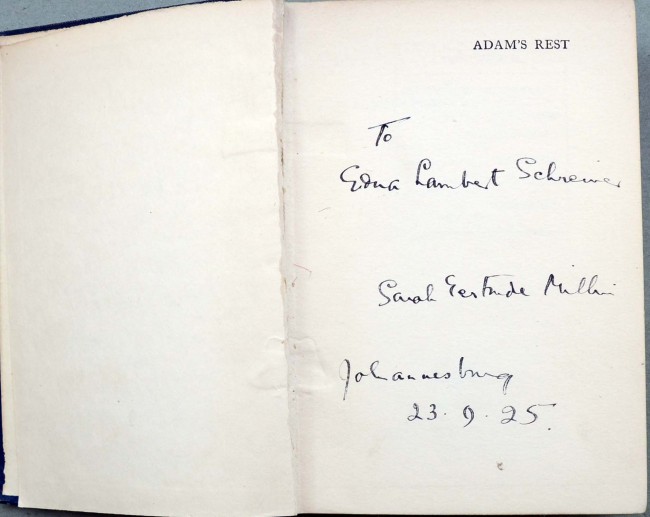 ADAM'S REST
To
Edna Lambert Schreiner
Sarah Gertrude Millin
Johannesburg
23.9.25.